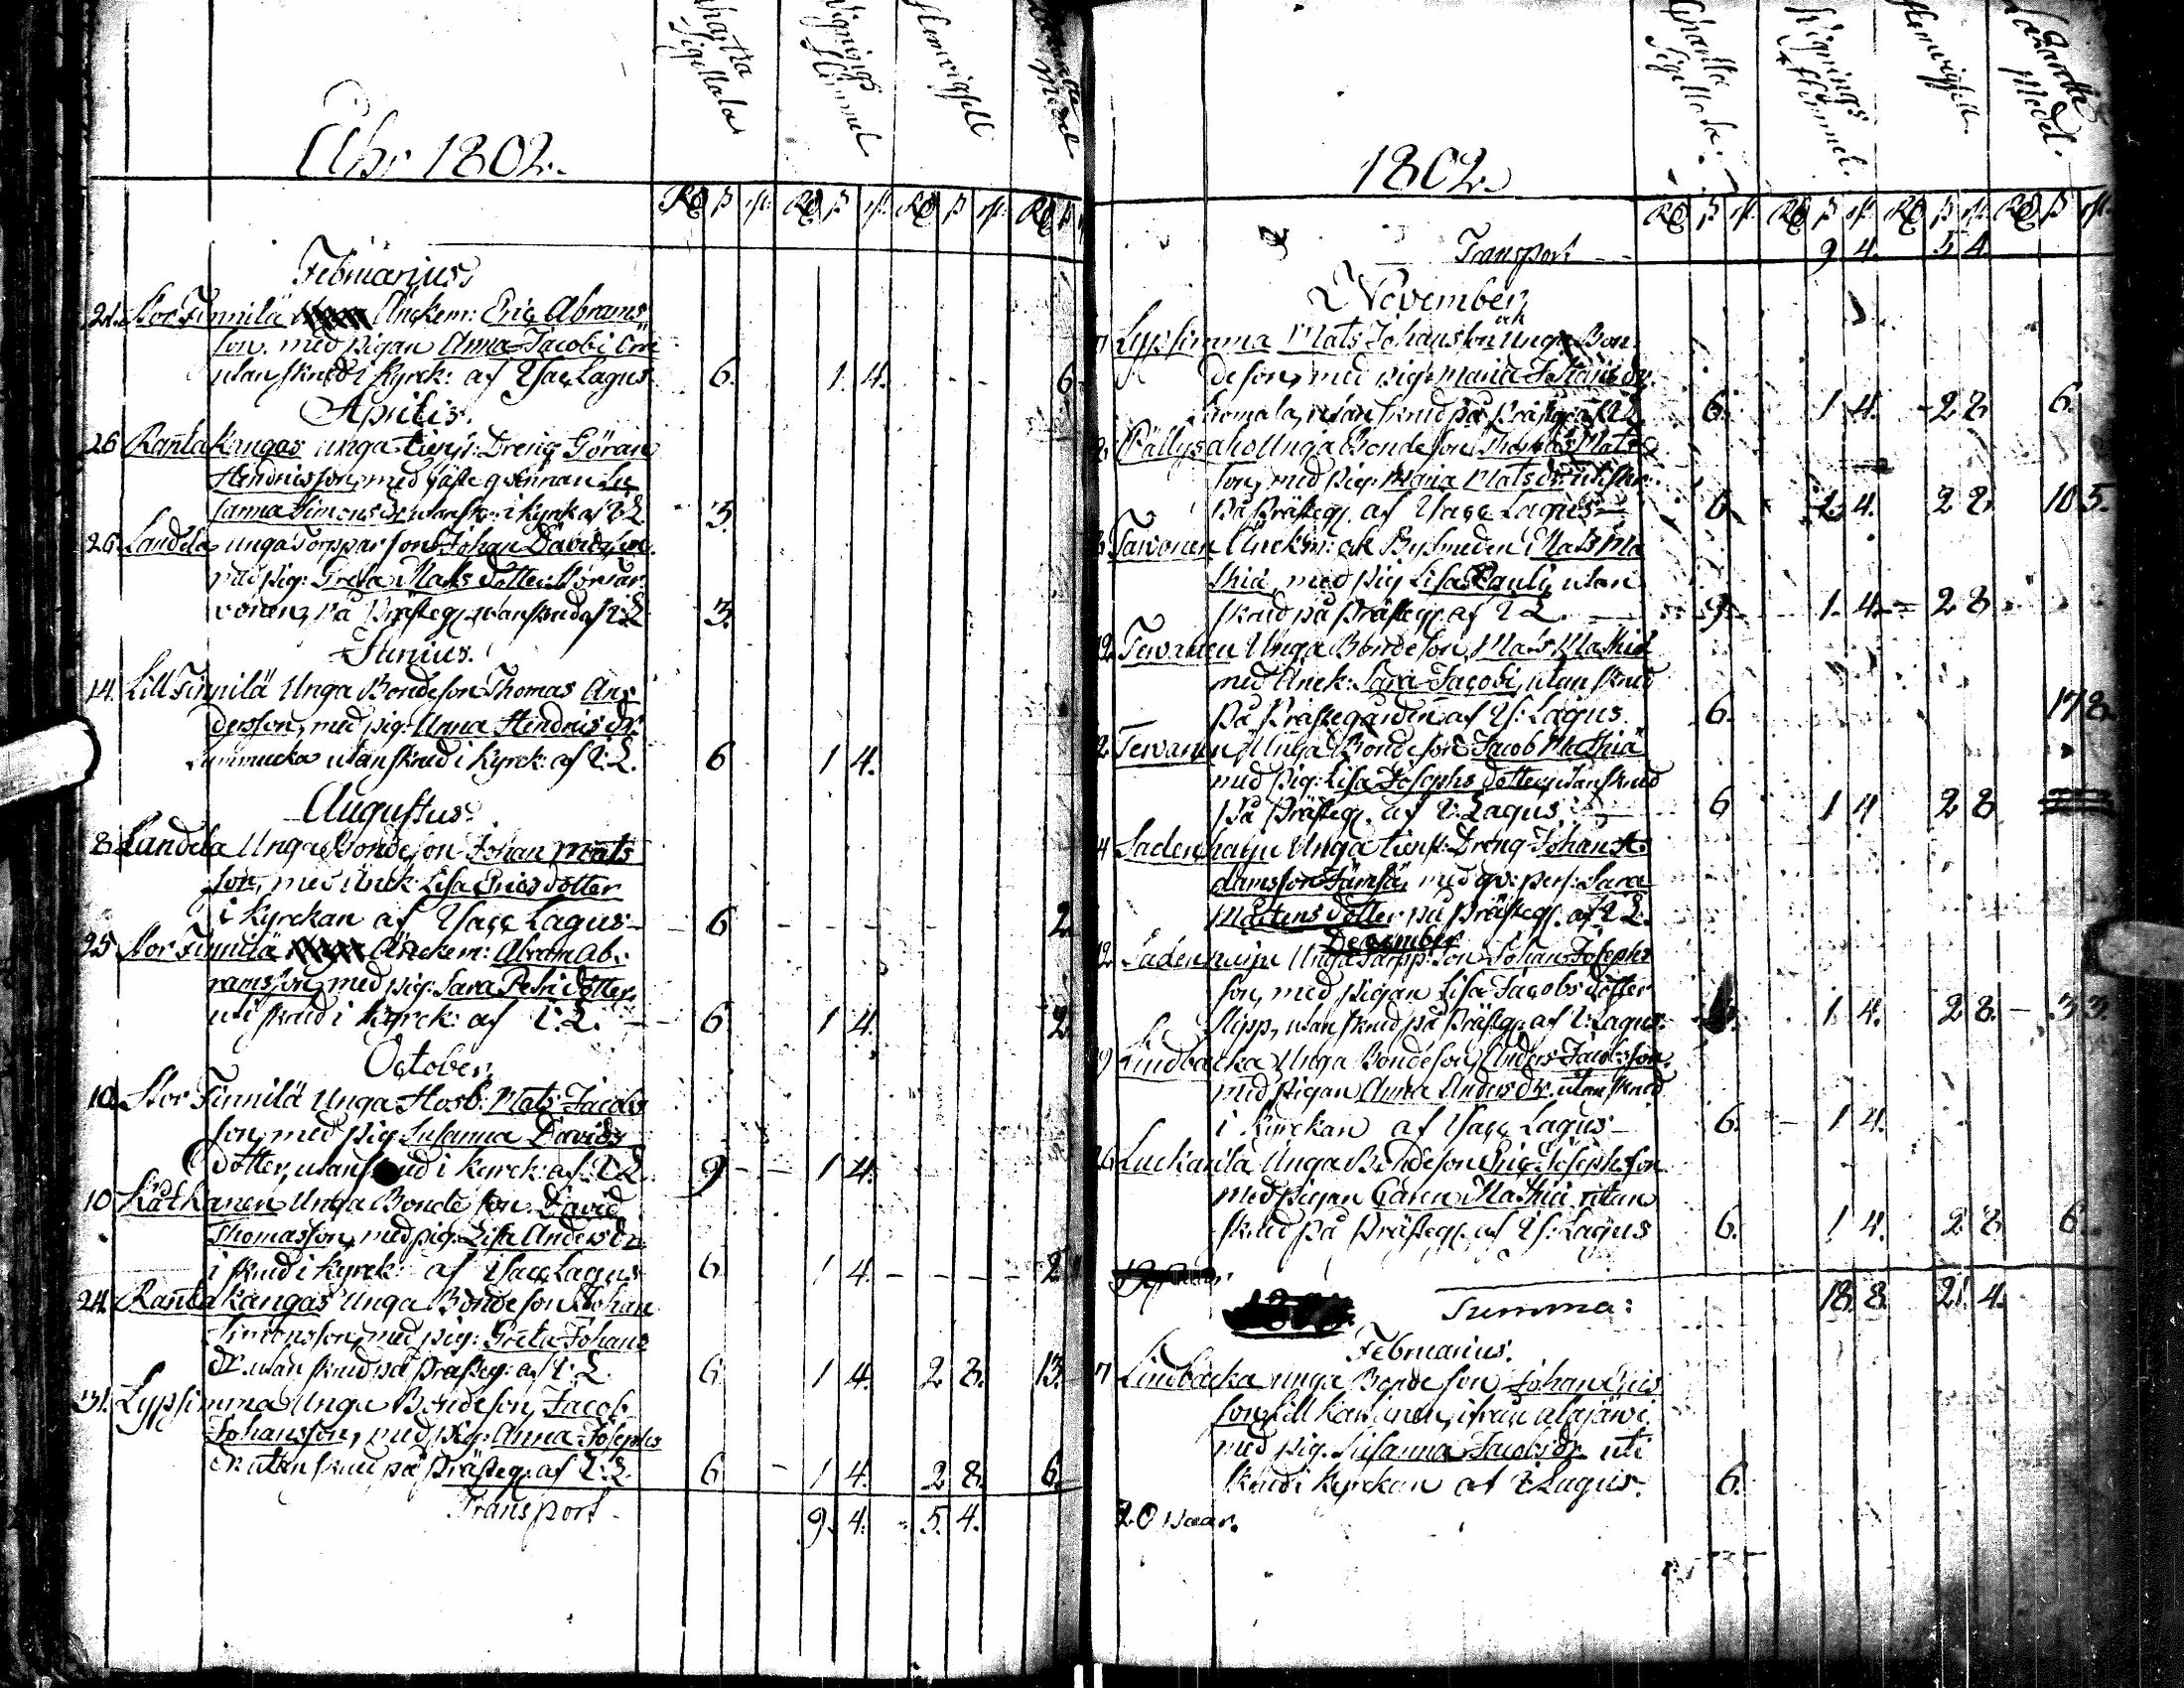 Charta Sigillata
Wignings Himmel
Hemvigsell
Medel
Åhr 1802.
Rd ß rst. Rd ß rst. Rd ß rst. Rd ß
Februarius
21. Stor Finnilä Änckem: Eric Abrams
son. med pigan Anna Jacobi
utan skrud i Kyrck: af Isaac Lagus 6. 1. 4. - - 6
Aprilis.
26 Rantakangas unga tienst: Dreng Göran
Hendricsson, med Gäste qvinnan Su
sanna Simons dr. utan skr: i kyrck af I: L. 3.
26. Landela unga Torppar son Johan Davidsson
med pig: Greta Mats dotter
på Prästeg. utan skrud af I: L. 3.
Junius.
14. Lill Finnilä Unga Bondeson Thomas An
dersson, med pig: Anna Hendrics dr.
Lummucka utan skrud i Kyrck: af I: L. 6 1 4.
Augustus.
8. Landela Unga Bondeson Johan Mats
son, med Änck: Lisa Erics dotter
i Kyrckan af Isaac Lagus - 6 - - - - 2
25 Stor Finnilä Änckem: Abram Ab-
ramsson, med pig: Sara Petri dotter
uti skrud i Kyrck: af I: L. - 6 1 4. 2
October
10. Stor Finnilä Unga Hosb: Mats Jacobs
son, med pig. Susanna Davids
dotter, utan skrud i kyrck: af I: L. 9 - - 1 4.
10 Kätkänen Unga Bonde son David
Thomasson, med pig: Lisa Anders dr.
i skrud i kyrck: af Isaac Lagus 6 1 4. - - - - 2
24. Rantakangas Unga Bondeson Johan
Simonsson, med pig: Greta Johans
dr. utan skrud på Prästeg: af I: L. 6 1 4. 2 8. 13.
31. Lypsinmaa Unga Bondeson, Jacob
Johansson, med pig. Anna Josephs
dr. utan skrud på Prästeg. af I: L. 6 - 1 4. 2 8. 6.
Transport - 9. 4. 5. 4.
Charta Sigillata.
Wignings Himmel.
Hemvigsell.
Medel.
1802.
Rd ß rst. Rd ß rst. Rd ß rst. Rd ß rst.
Transport - - 9 4. 5 4.
November
Lypsinmaa Mats Johansson ock Unga Bon
deson, med pig: Maria Johans dr.
utan skrud på Prästeg. af I: L. 6. 1 4. 2 8. 6.
Pällysaho Unga Bondeson Thomas Mats
son, med Pig. Maria Mats dr.
På Prästeg. af Isaac Lagus 6 1. 4. 2 8. 10 5.
Tervonen Änckm: ock Bysmeden Mats Ma
thiä med pig Lisa Pauli, utan
skrud på Prästeg. af I L. 9. - 1. 4. 2 8.
Tervanen Unga Bondeson, Mats Mathiä
med Änck: Sara Jacobi, utan skrud
på Prästegården af Is: Lagus. 6. 17 8.
Tervanen, Unga Bondeson Jacob Mathiä
med Pig: Lisa Josephs dotter, utan skrud
På Prästeg. af I: Lagus. 6 1 4 2 8
Sadenharju Unga tienst: Dreng Johan A-
damsson Jämsä, med qv: pers: Sara
Mårtens dotter på Prästeg. af I: L.
December
12. Sadenharju Unga Tarpp: son Johan Josephs
son, med pigan Lisa Jacobs dotter
Slipp, utan skrud på Prästeg. af I: Lagus. 1. 4. 2 8. - 3 3.
Lindbäcka Unga Bondeson, Anders Jacobsson.
med pigan Anna Anders dr. utan skrud
i Kyrckan af Isaac Lagus - 6. - 1 4.
26 Luckarila Unga Bondeson Eric Josephsson
med pigan Caren Mathiä utan
skrud på Prästeg. af Is: Lagus 6. 1 4. 2 8 6.
Summa: 18. 8. 21. 4.
Februarius.
Lindbäcka unga Bonde son Johan Erics
son, ifrån Alajärwi,
med pig. Susanna Jacobs dr. uti
skrud i Kyrckan af I Lagus. 6.
20 paar.